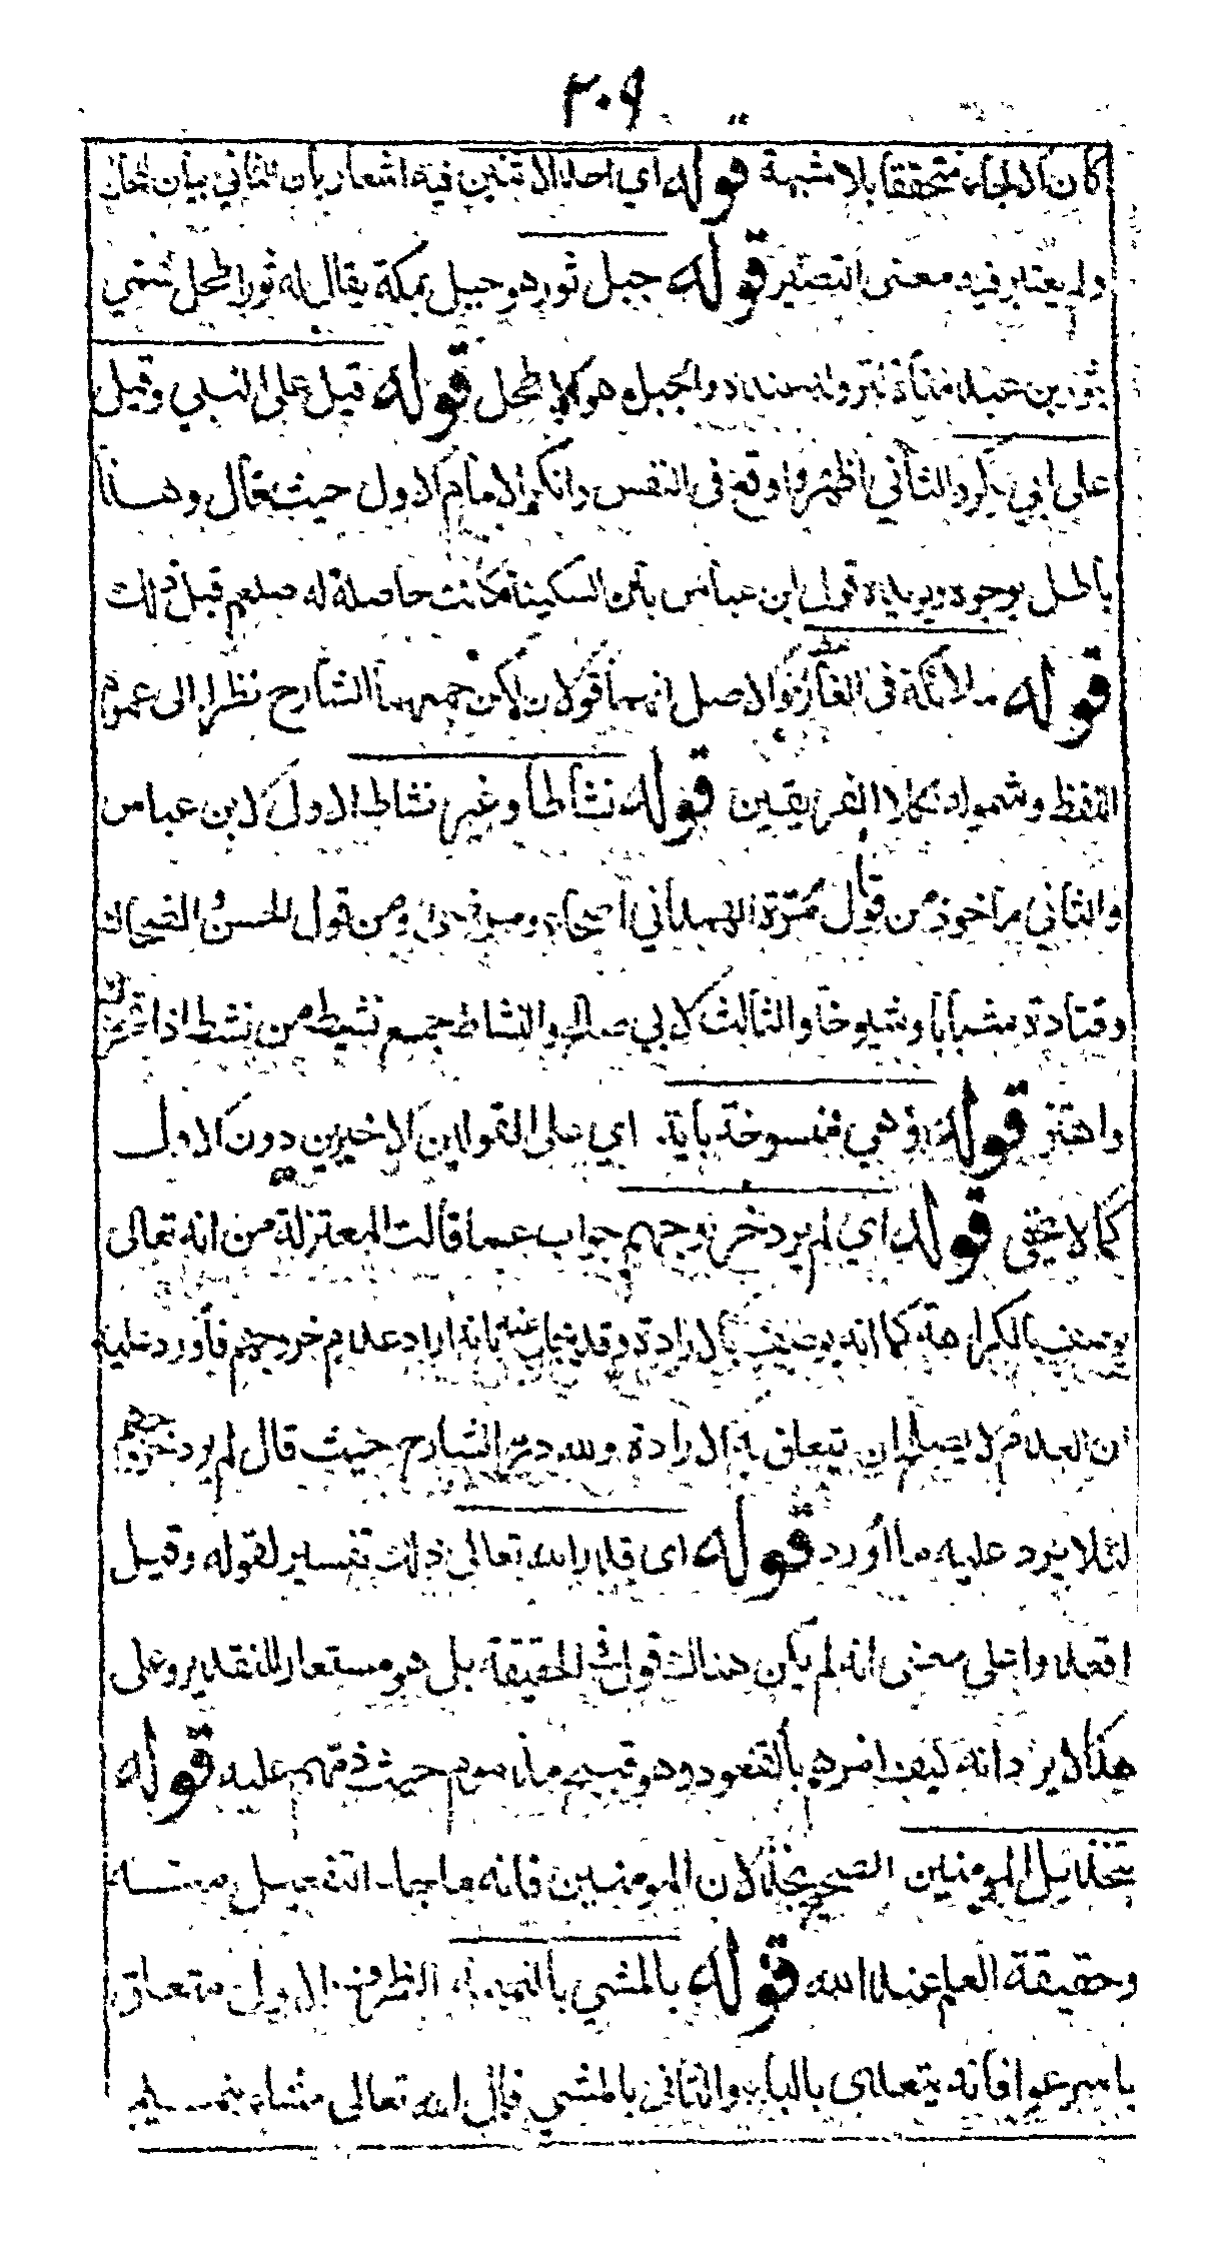 ٣٠٩
كان الالجاء متحققا بلا شبهة قوله اي احد الاثنين فيه اشعار بان الثاني بيان للحال
ولم يعتبر فيه معنى التصيير قوله جبل ثور هو جبل بمكة يقال له ثور اطحل سمي
بثور بن عبد مناة دوالجبل هو كالاطحل قوله قيل على النبي وقيل
على ابي بكر والثاني اظهر واوقع في النفس وانكر الامام الاول حيث قال وهذا
باطل بوجوه ويويده قول ابن عباس بان السكينة كانت حاصلة له صلعم قبل ذلك
قوله ملائكة في الغار والاصل انهما قولان لكن جمعهما الشارح نظرا الى عموم
اللفظ وشموله لكلا الفريقين قوله نشاطا وغير نشاط الاول لابن عباس
والثاني ماخوذ من قول مرة الهمداني اصحاء ومرضى ومن قول الحسن والضحاك
وقتادة شبابا وشيوخا والثالث لابي صالح والنشاط جمع نشيط من نشط اذا تحرك
واهتز قوله وهي منسوخة باية اي على القولين الاخيرين دون الاول
كما لا يخفى قوله اي لم يرد خروجهم جواب عما قالت المعتزلة من انه تعالى
يوصف بالكراهة كما انه يوصف بالارادة وقد يجاب عنه بانه اراد عدم خروجهم فاورد عليه
ان العدم لا يصلح ان يتعلق به الارادة ولله در الشارح حيث قال لم يرد خروجهم
لئلا يرد عليه ما اورد قوله اي قدر الله تعالى ذلك تفسير لقوله وقيل
اقعدوا على معنى انه لم يكن هناك قول في الحقيقة بل هو مستعار للتقدير وعلى
هذا لا يرد انه كيف امرهم بالقعود وهو قبيح مذموم حيث ذمهم عليه قوله
بتخذيل المومنين الصحيح بخذلان المومنين فانه ما جاء التفعيل منه
وحقيقة العلم عند الله قوله بالمشي بالنميمة الظرف الاول متعلق
باسرعوا فانه يتعدى بالباء والثاني بالمشي قال الله تعالى مشاء بنميم